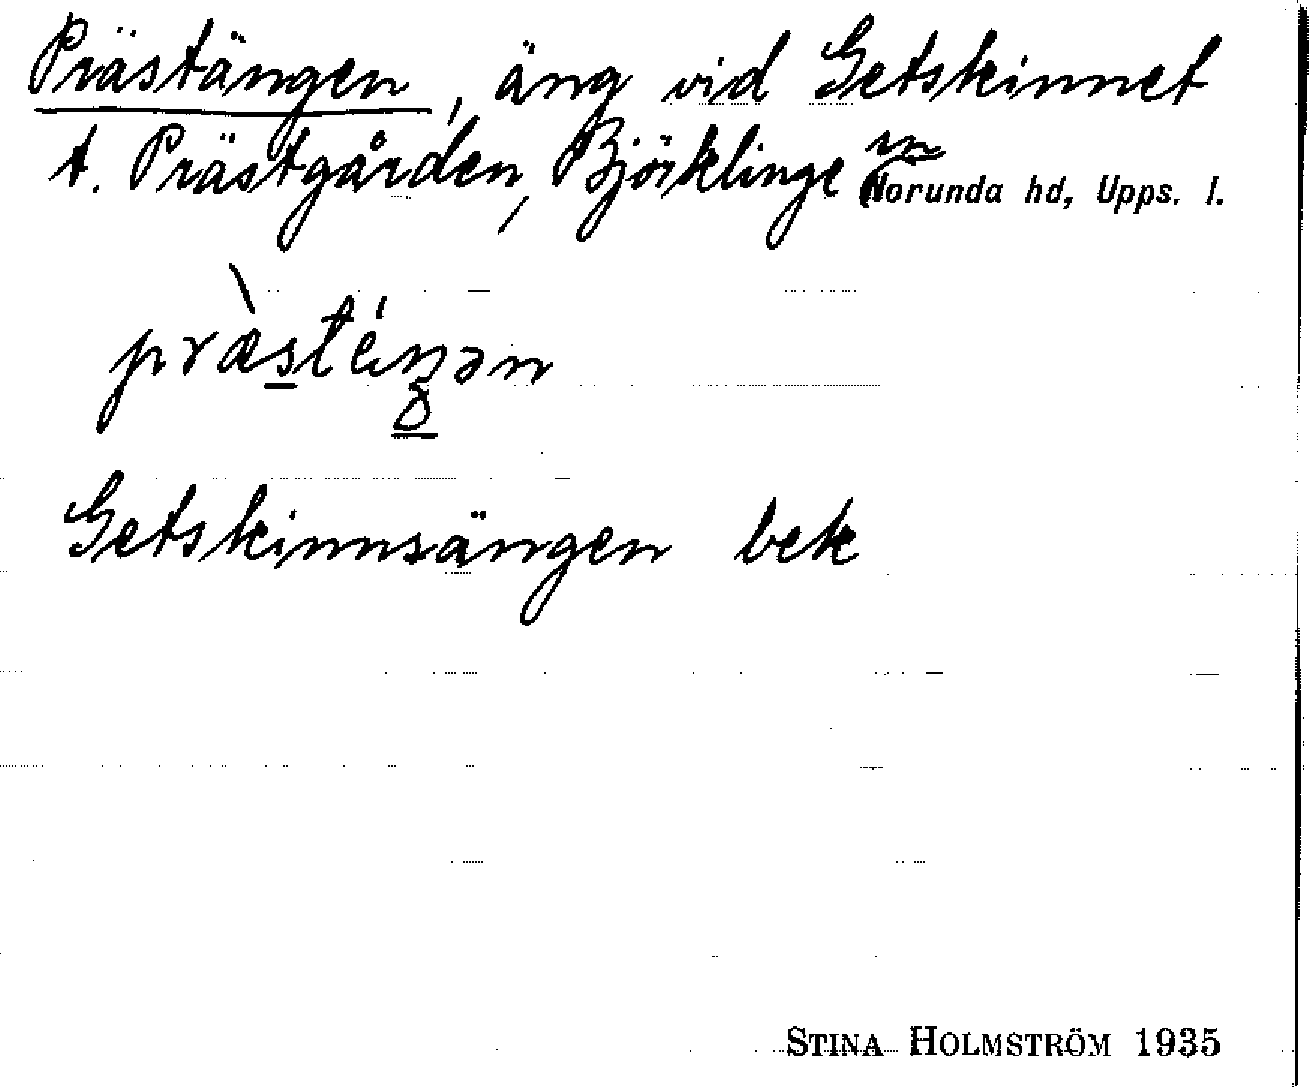 Prästängen, äng vid Getskinnet
t. Prästgården, Björklinge sn Norunda hd, Upps. l.
præ̀sténən
Getskinnsängen bek
STINA HOLMSTRÖM 1935